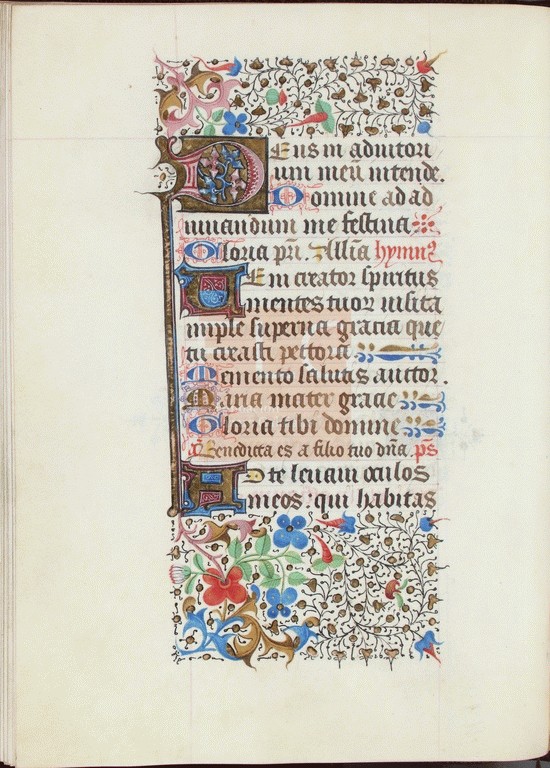 Deus in adiutori
um meū intende.
Domine ad ad
iuuandum me festina
Gloria pri. Allīa hymnꝰ
Veni creator spiritus
mentes tuoꝝ uisita
imple superna gracia que
tu creasti pectora
Memento salutis auctor.
Maria mater gracie
Gloria tibi domine
añ Benedicta es a filio tuo dña. p̄s
Ad te leuaui oculos
meos: qui habitas